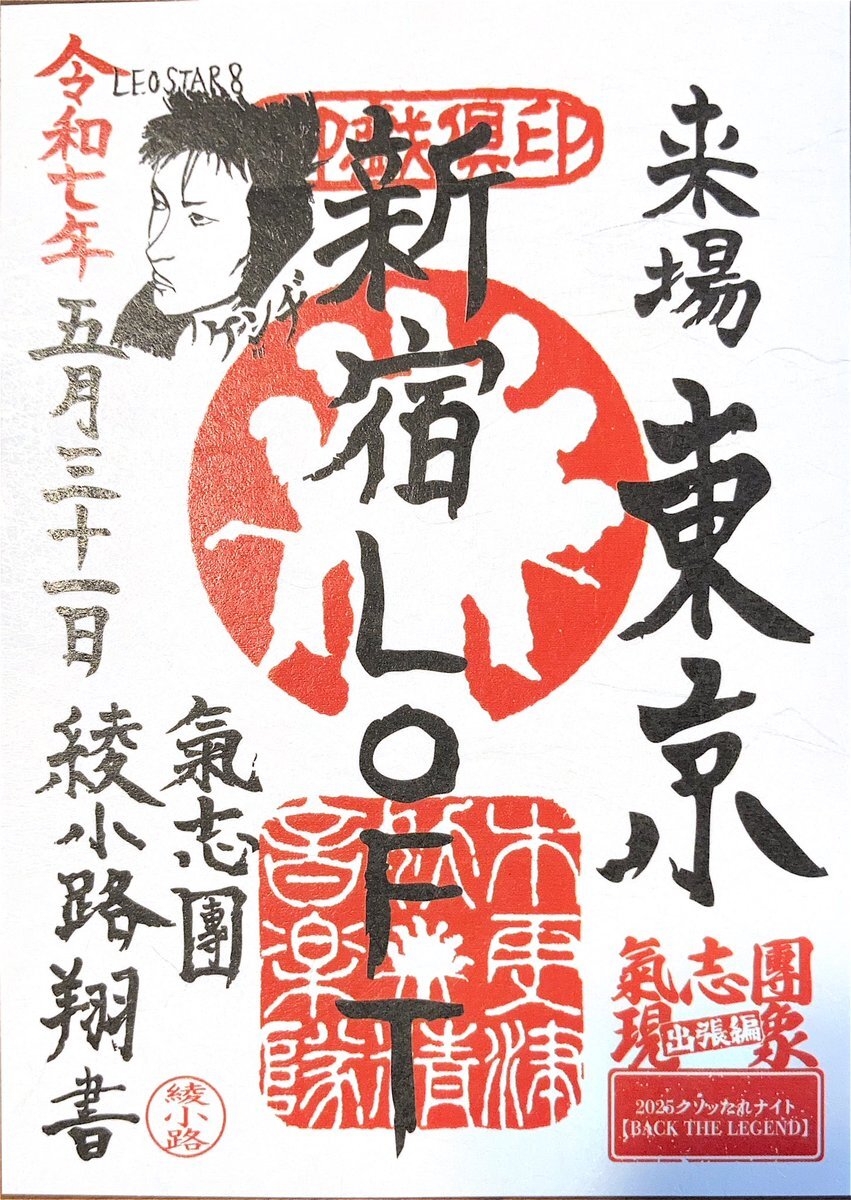 来場 東京
新宿LOFT
木更津
音楽隊
氣志團
現象
出張編
2025クソッたれナイト
【BACK THE LEGEND】
LEOSTAR8
令和七年 五月三十一日
氣志團
綾小路翔 書
綾小路